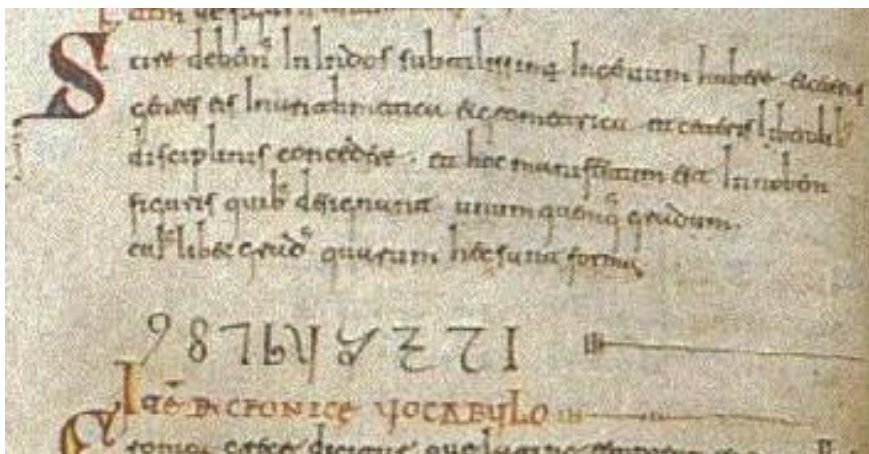 Scire debem⁹ In Indos subtilissimum Ingenium habere et ceteras
gentes eis In arithmetica et geometrica et ceteris liberalib⁹
disciplinis concedere. et hoc manifestum est In nobem
figuris quib⁹ designant unumquemq gradum.
cui⁹libet grad⁹ quarum hec sunt forma
9 8 7 6 5 4 3 2 1
Itē DE CRONICE VOCABULO